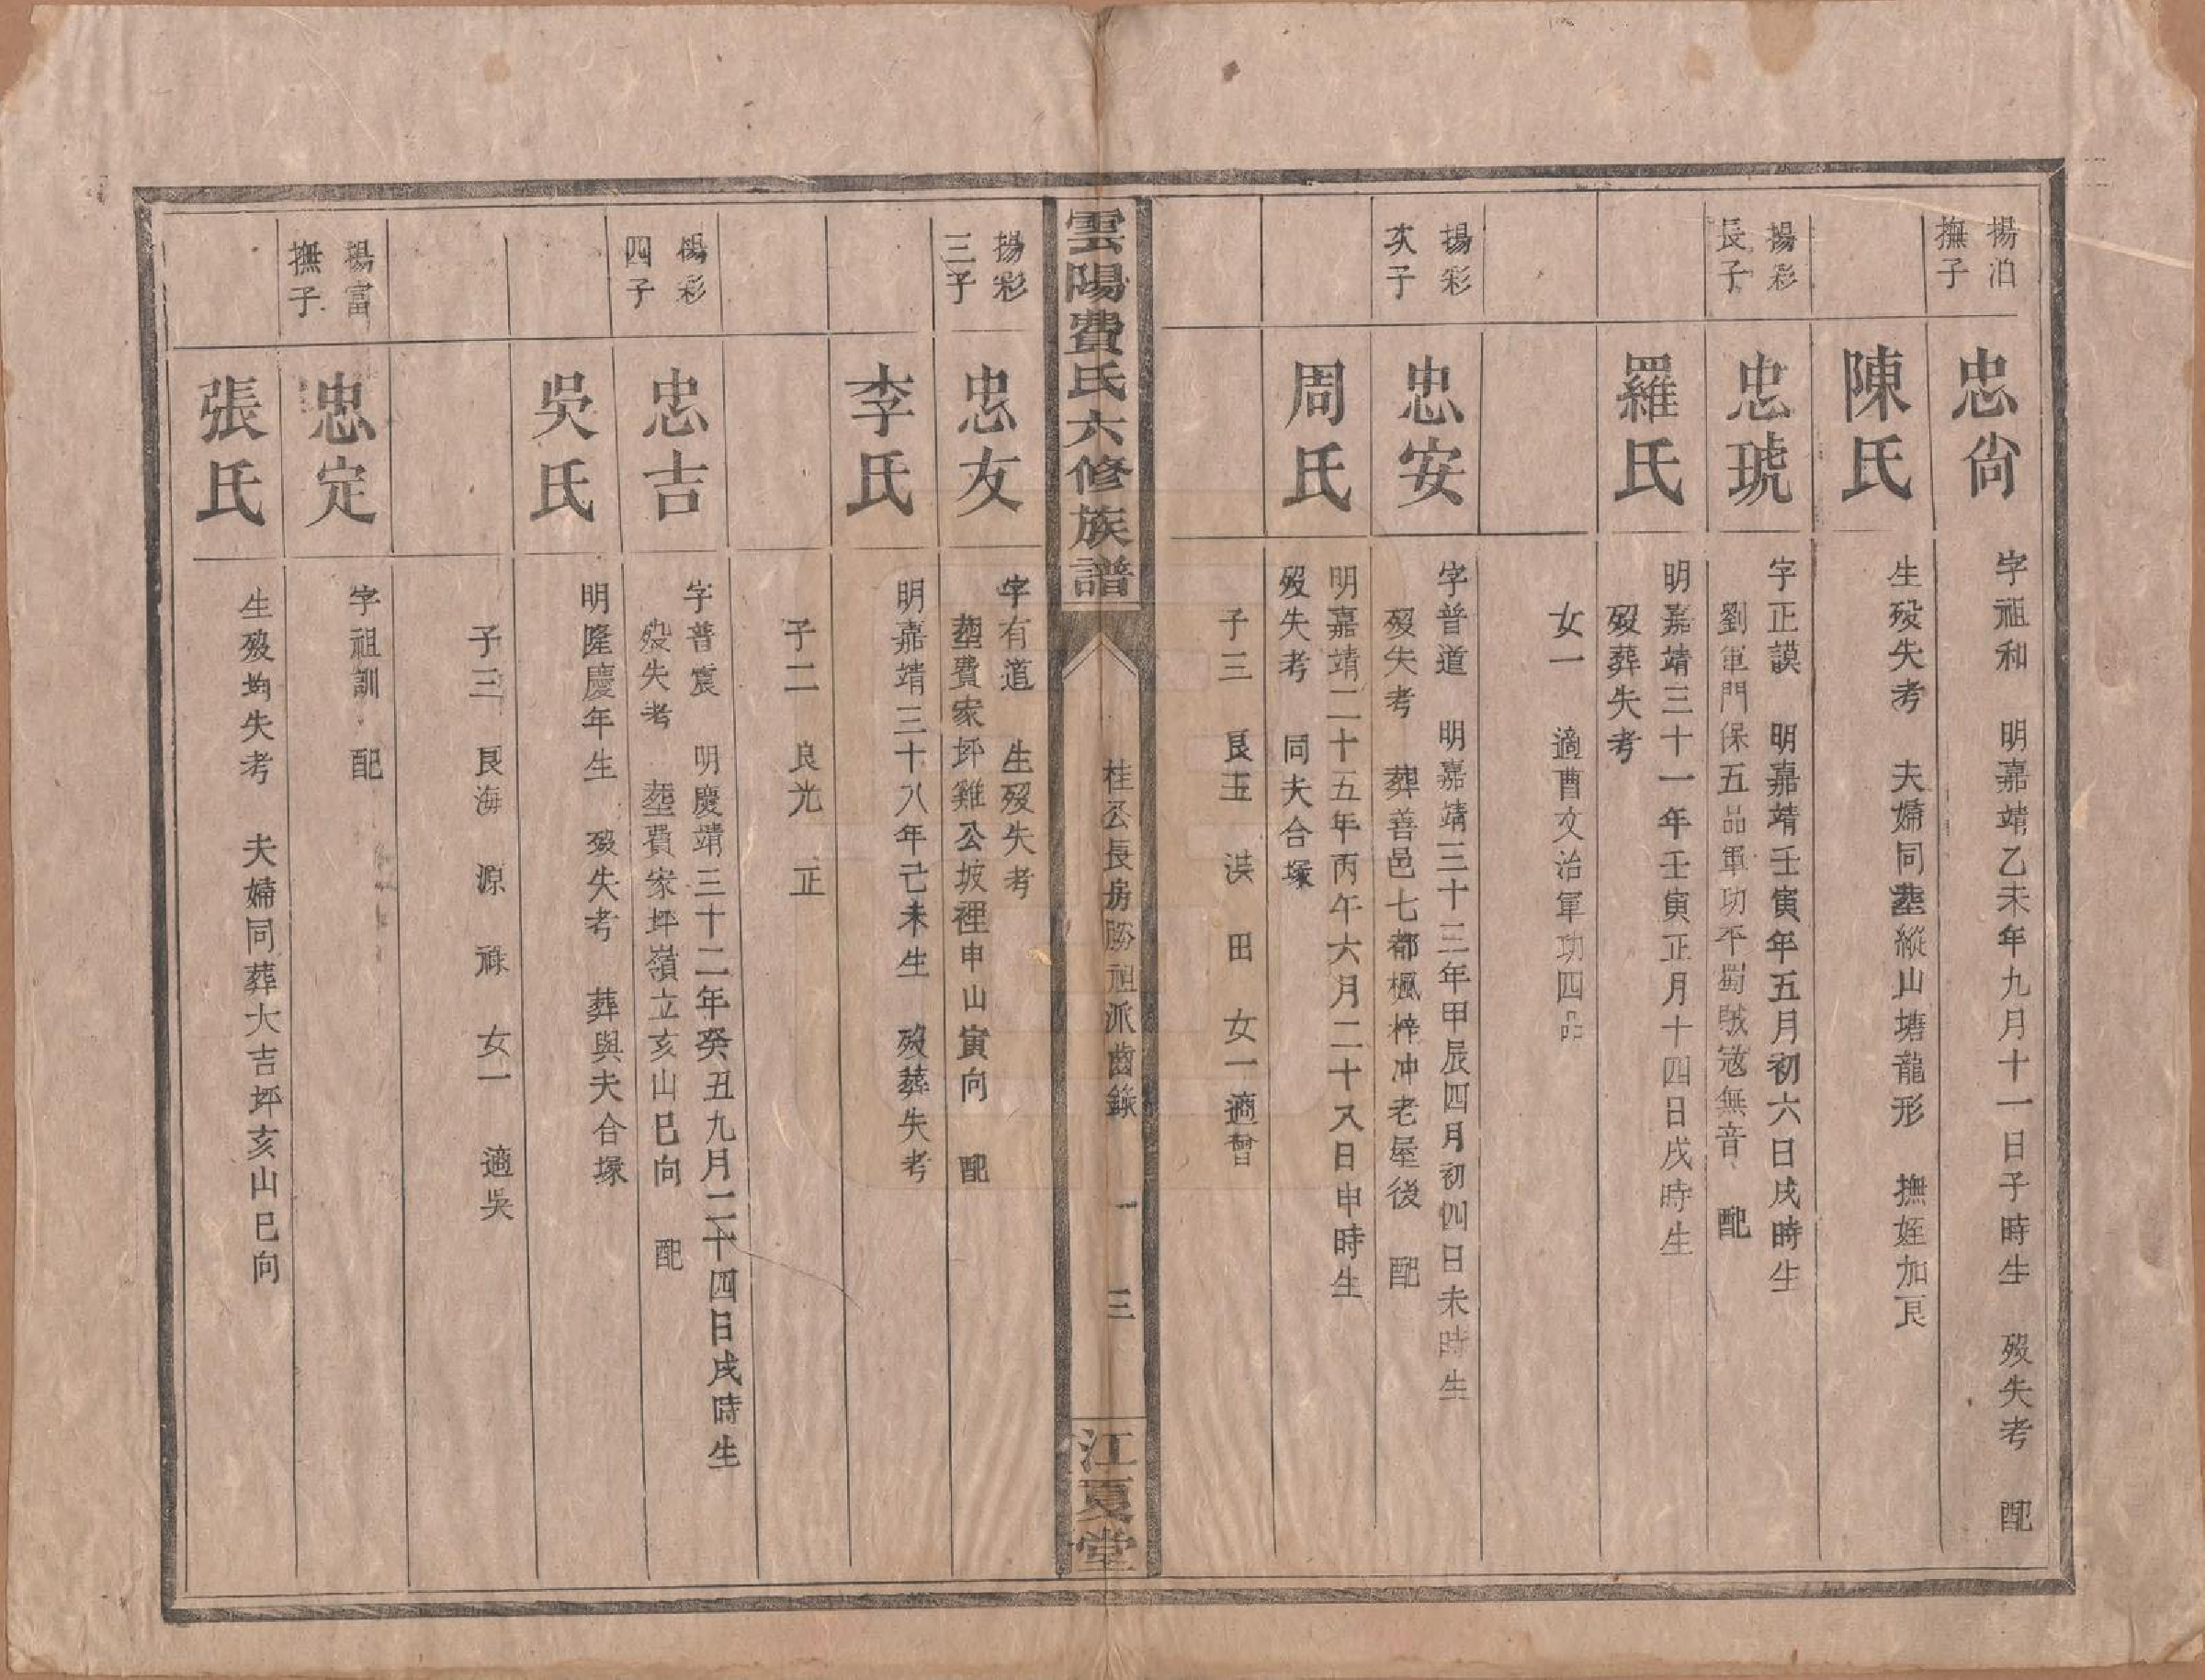 揚泊
撫子
忠尙
字祖和　明嘉靖乙未年九月十一日子時生　歿失考　配
陳氏
生歿失考　夫婦同塟縱山塘龍形　撫姪加良
揚彩
長子
忠琥
字正謨　明嘉靖壬寅年五月初六日戌時生
劉軍門保五品軍功平蜀賊寇無音　配
羅氏
明嘉靖三十一年壬寅正月十四日戌時生
歿葬失考
女一　適曹文治軍功四品
揚彩
次子
忠安
字普道　明嘉靖三十三年甲辰四月初四日未時生
歿失考　葬善邑七都楓梓冲老屋後　配
周氏
明嘉靖二十五年丙午六月二十八日申時生
歿失考　同夫合塚
子三　良玉　洪　田　女一適曾
雲陽費氏六修族譜
桂公長房勝祖派齒錄　一　三
江夏堂
揚彩
三子
忠友
字有道　生歿失考
塟費家坪雞公坡裡申山寅向　配
李氏
明嘉靖三十八年己未生　歿葬失考
子二　良光　正
楊彩
四子
忠吉
字普震　明慶靖三十二年癸丑九月二十四日戌時生
歿失考　塟費家坪嶺立亥山巳向　配
吳氏
明隆慶年生　歿失考　葬與夫合塚
子三　良海　源　祿　女一　適吳
楊富
撫子
忠定
字祖訓　配
張氏
生歿均失考　夫婦同葬大吉坪亥山巳向